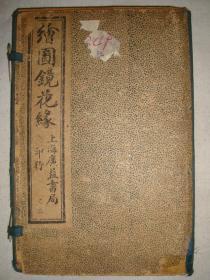 繪圖鏡花緣
上海廣益書局
印行